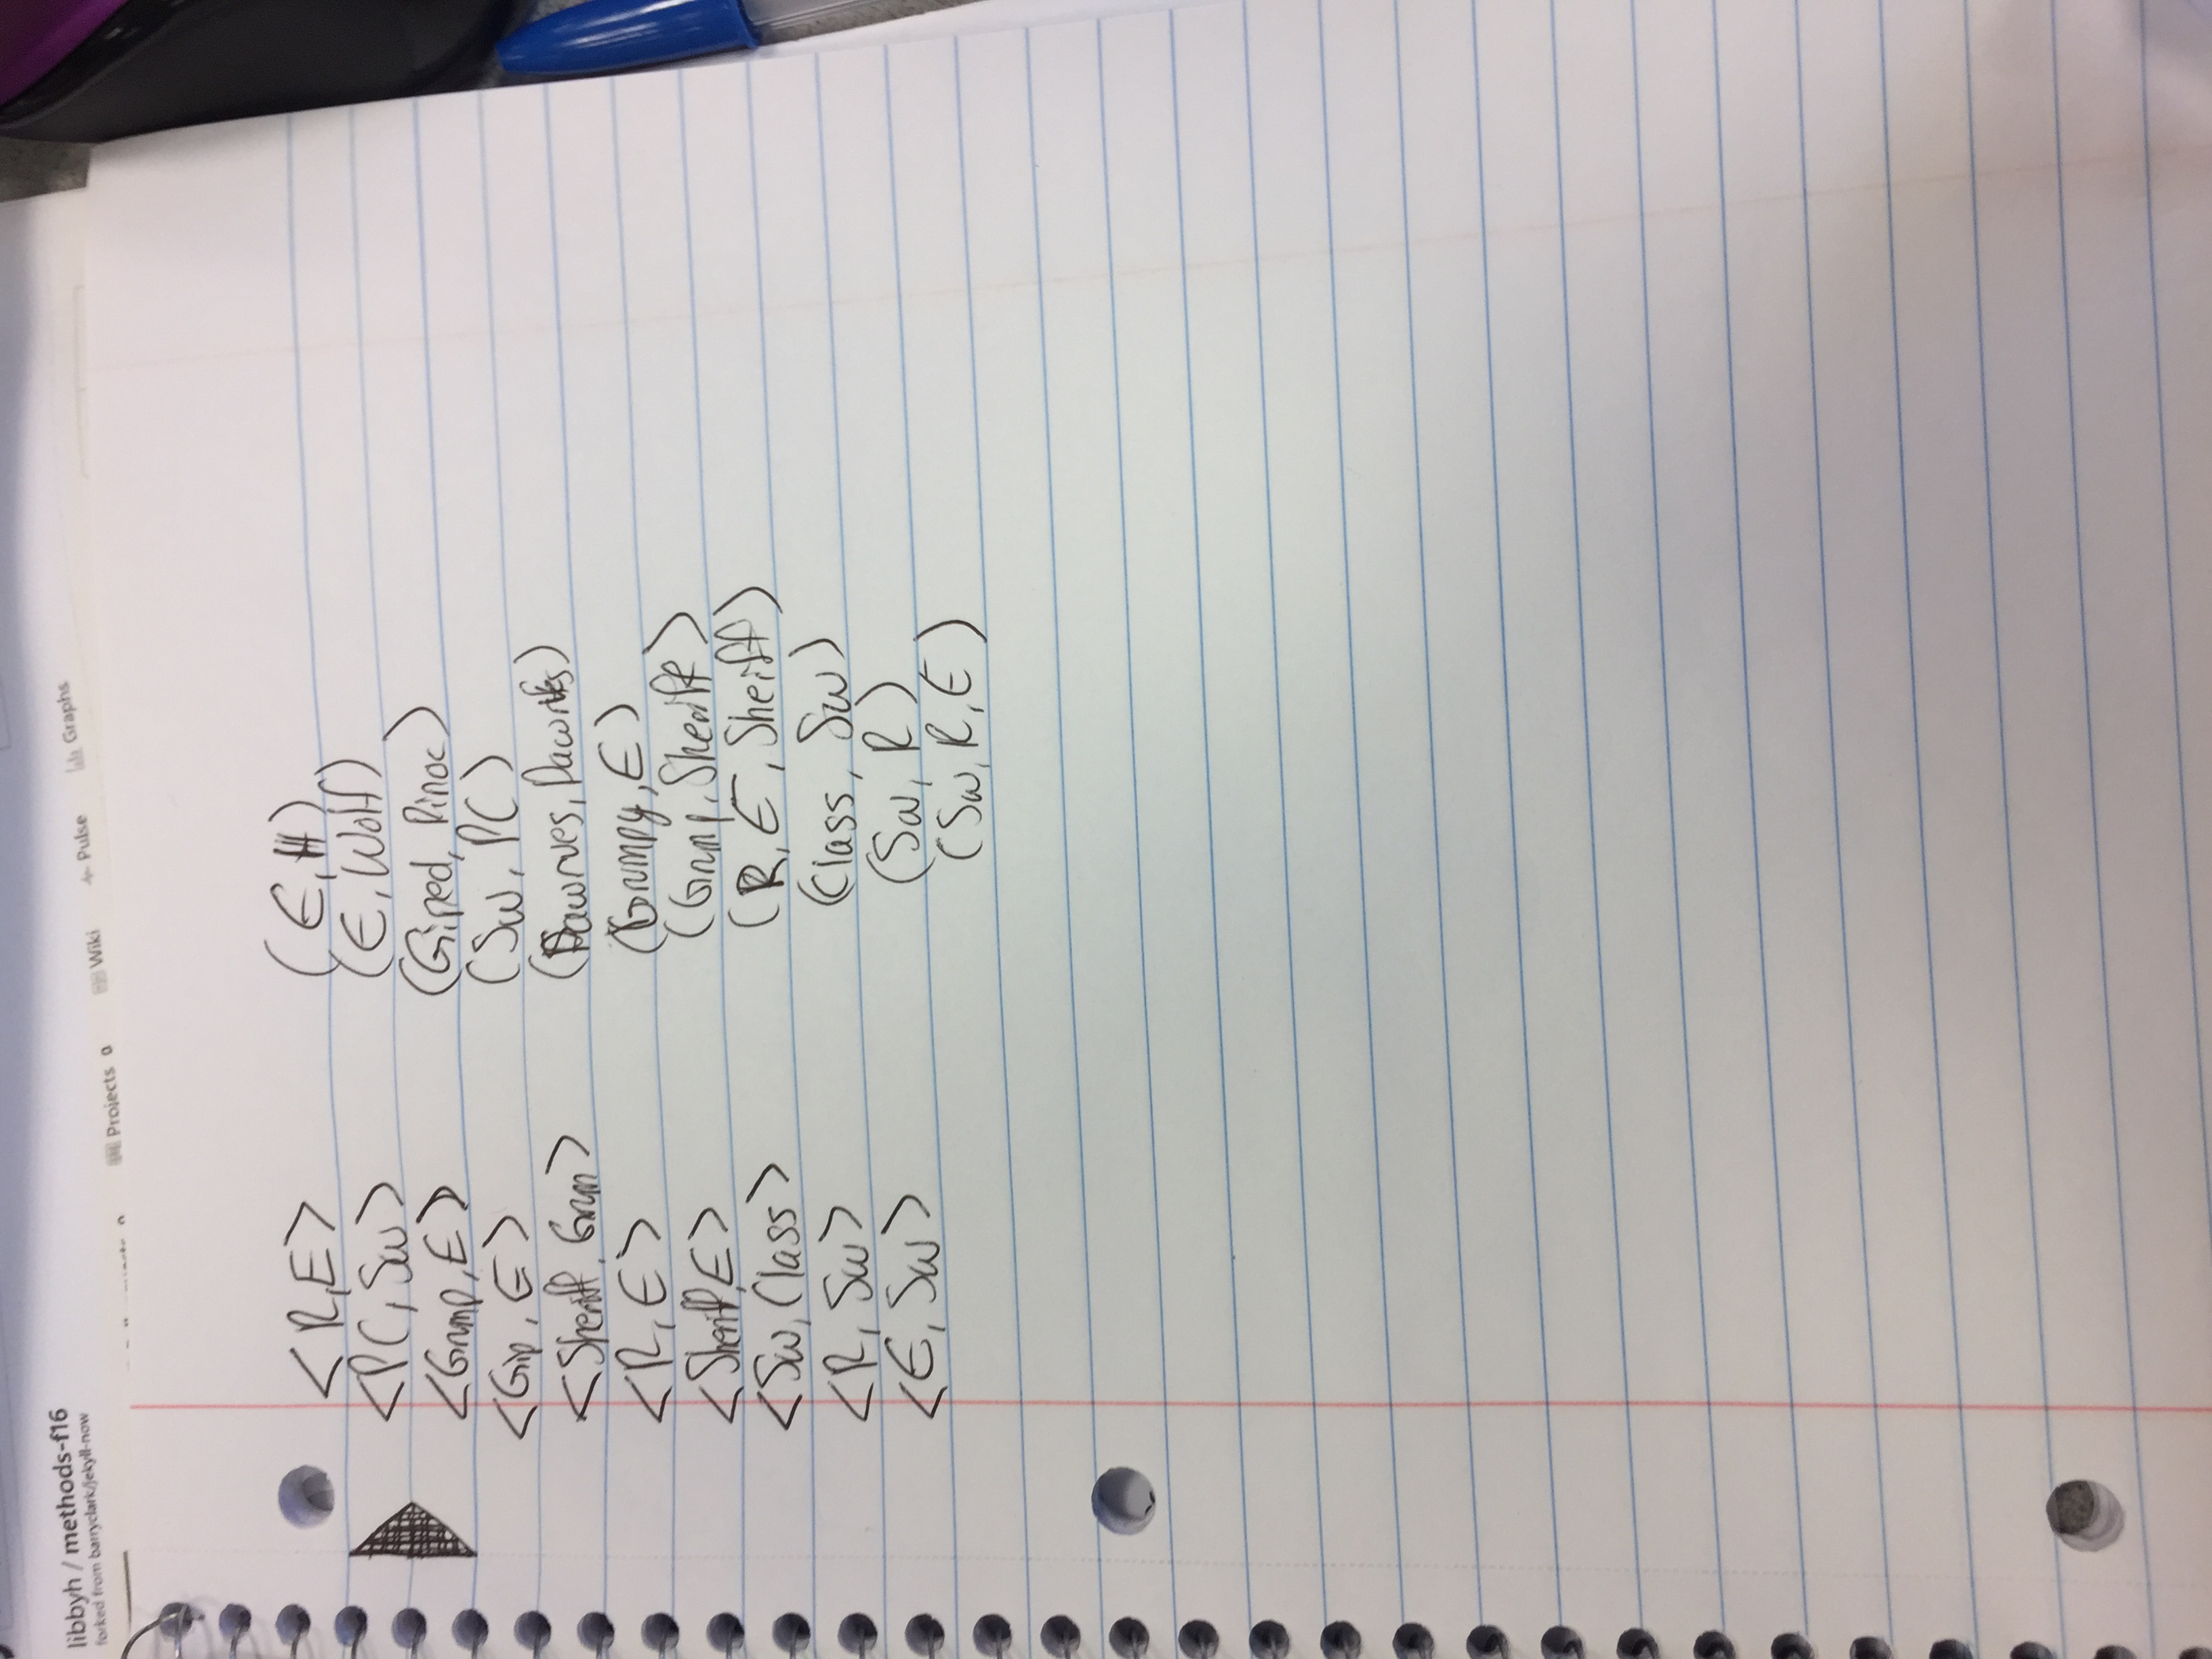 libbyh / methods-f16
forked from barryclark/jekyll-now
Projects 0 Wiki Pulse Graphs
<R,E>
<PC, Sw>
<Grmp, E>
<Gip, E>
<Sheriff, Grum>
<R, E>
<Sheriff, E>
<Sw, Class>
<R, Sw>
<E, Sw>
(E, H)
(E, Wolf)
(Giped, Pinoc)
(Sw, PC)
(Dawrves, Dawrves)
(Grumpy, E)
(Grmp, Sheriff>
(R, E, Sheiff)
(Class, Sw)
(Sw, R)
(Sw, R, E)